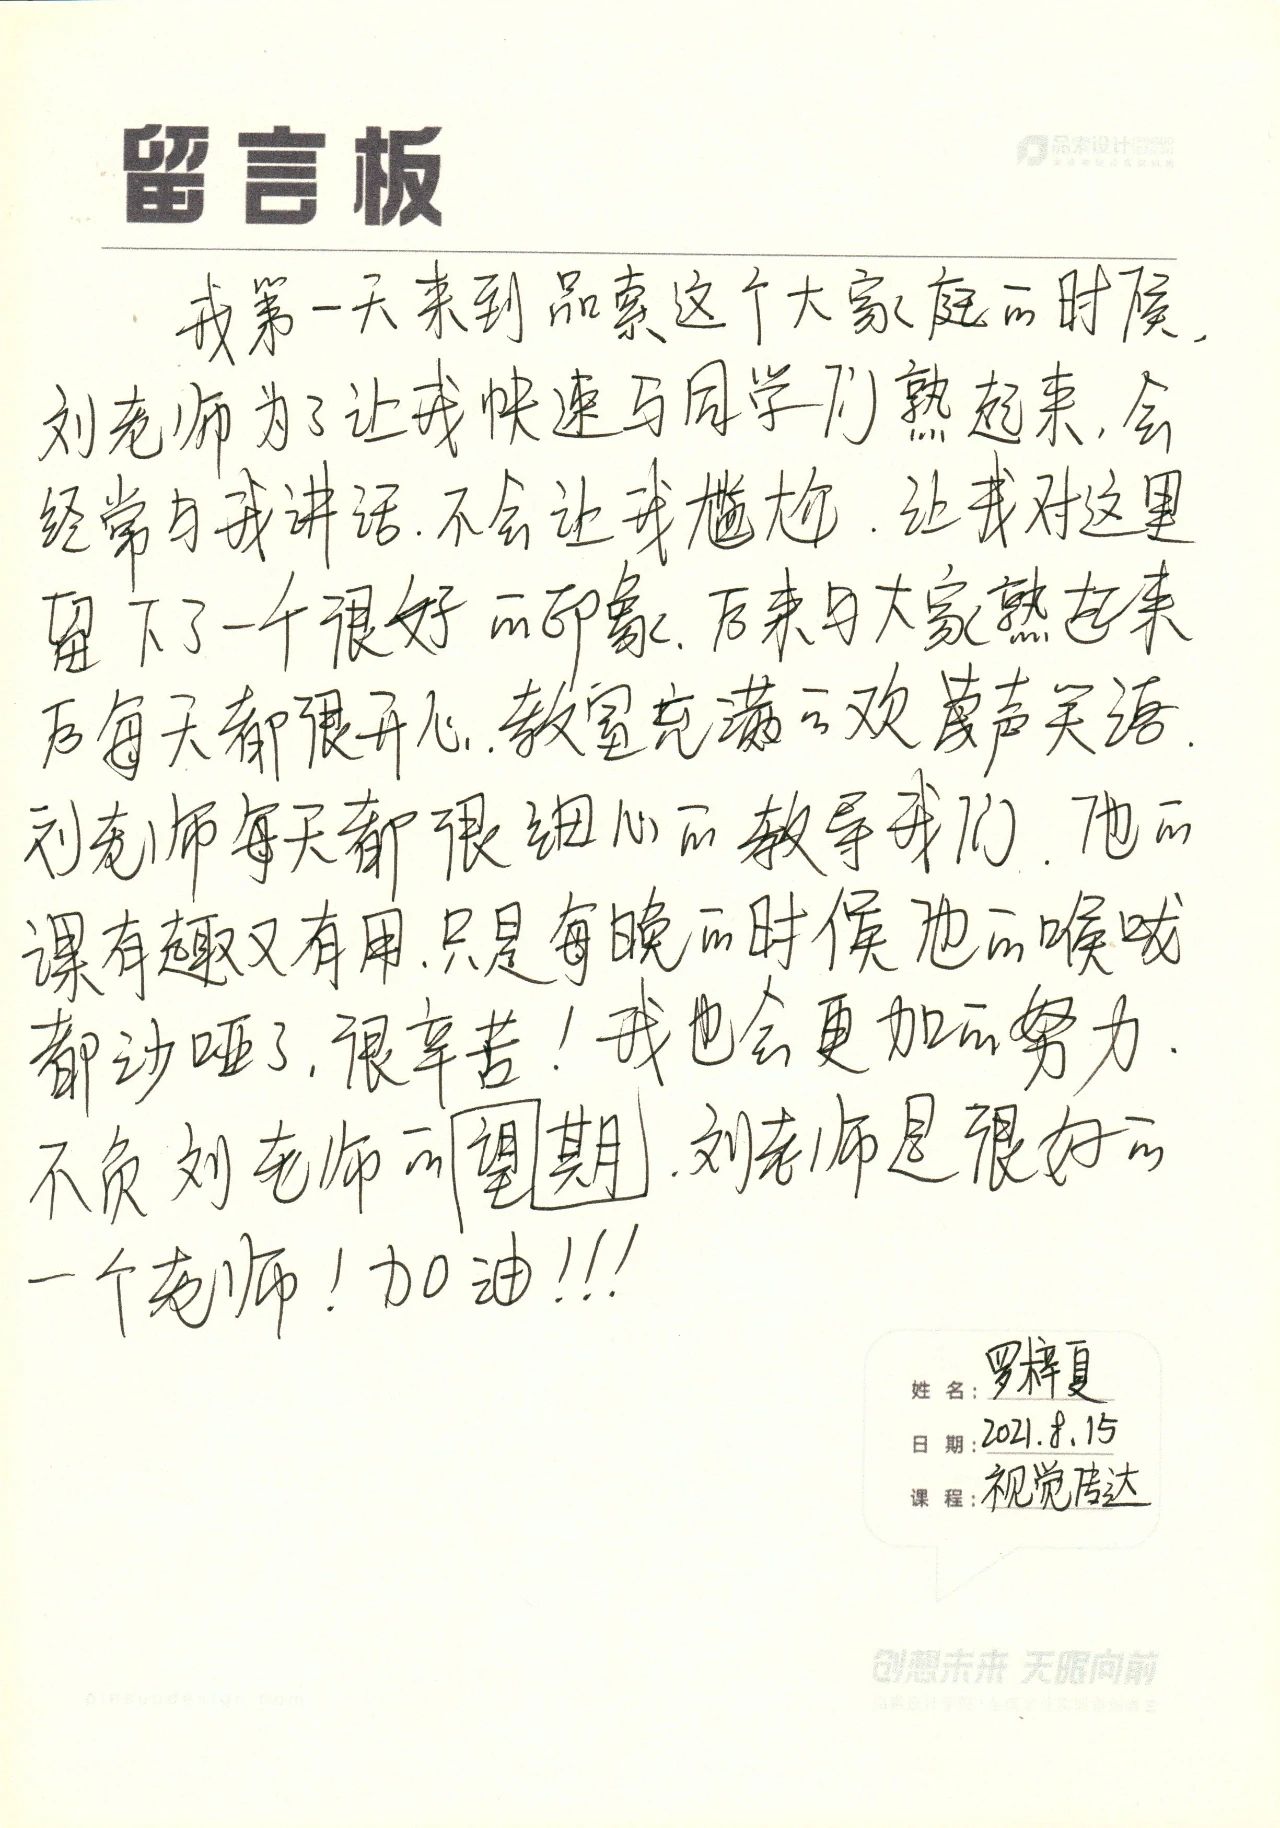 留言板
品索设计
我第一天来到品索这个大家庭的时候,
刘老师为了让我快速与同学们熟起来,会
经常与我讲话,不会让我尴尬,让我对这里
留下了一个很好的印象,后来与大家熟起来
后每天都很开心,教室充满了欢声笑语.
刘老师每天都很细心的教导我们,他的
课有趣又有用,只是每晚的时候他的喉咙
都沙哑了,很辛苦!我也会更加的努力.
不负刘老师的望期,刘老师是很好的
一个老师!加油!!!
姓名:罗梓夏
日期:2021.8.15
课程:视觉传达
创想未来 无限向前